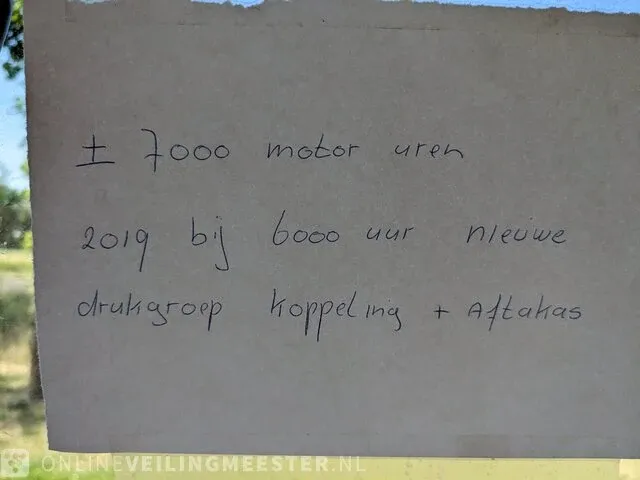 ± 7000 motor uren
2019 bij 6000 uur nieuwe
drukgroep koppeling + Aftakas
ONLINEVEILINGMEESTER.NL